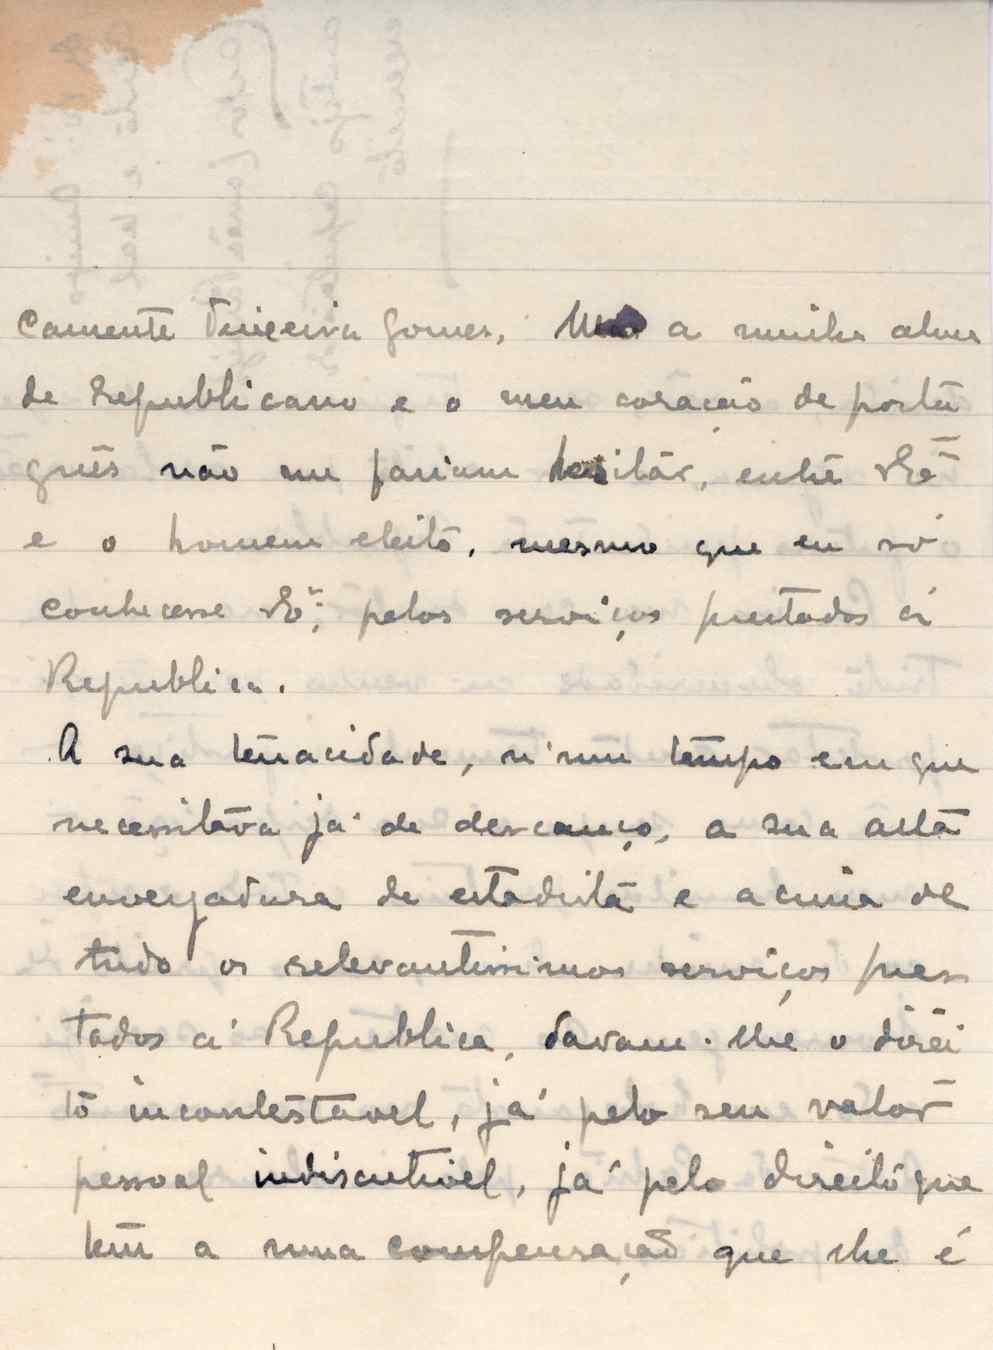 camente Teixeira Gomes, Mas a minha alma
de republicano e o meu coração de portu
guês não me fariam hesitár, entre V. Ex.ª
e o homem eleito, mesmo que eu só
conhecesse V. Ex.ª, pelos serviços prestados á
Republica.
A sua tenacidade, n'um tempo em que
necessitava já de descanço, a sua alta
envergadura de estadista e acima de
tudo os relevantissimos serviços pres
tados á Republica, davam-lhe o direi
to incontestavel, já pelo seu valor
pessoal indiscutivel, já pelo direito que
tem a uma compensação que lhe é